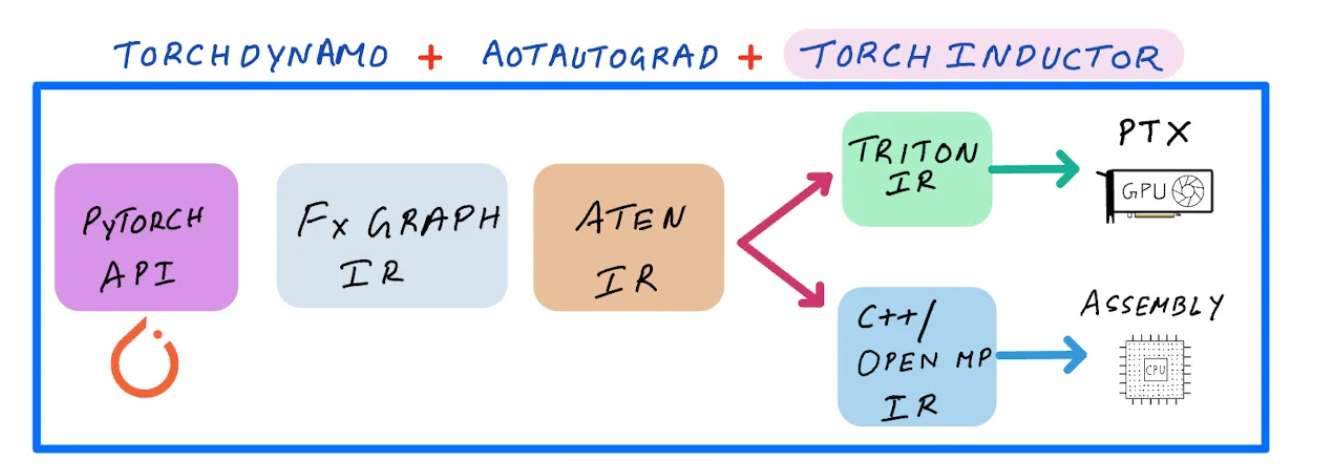 TORCHDYNAMO + AOTAUTOGRAD + TORCH INDUCTOR
PYTORCH
API
FX GRAPH
IR
ATEN
IR
TRITON
IR
PTX
GPU
C++/
OPEN MP
IR
ASSEMBLY
CPU